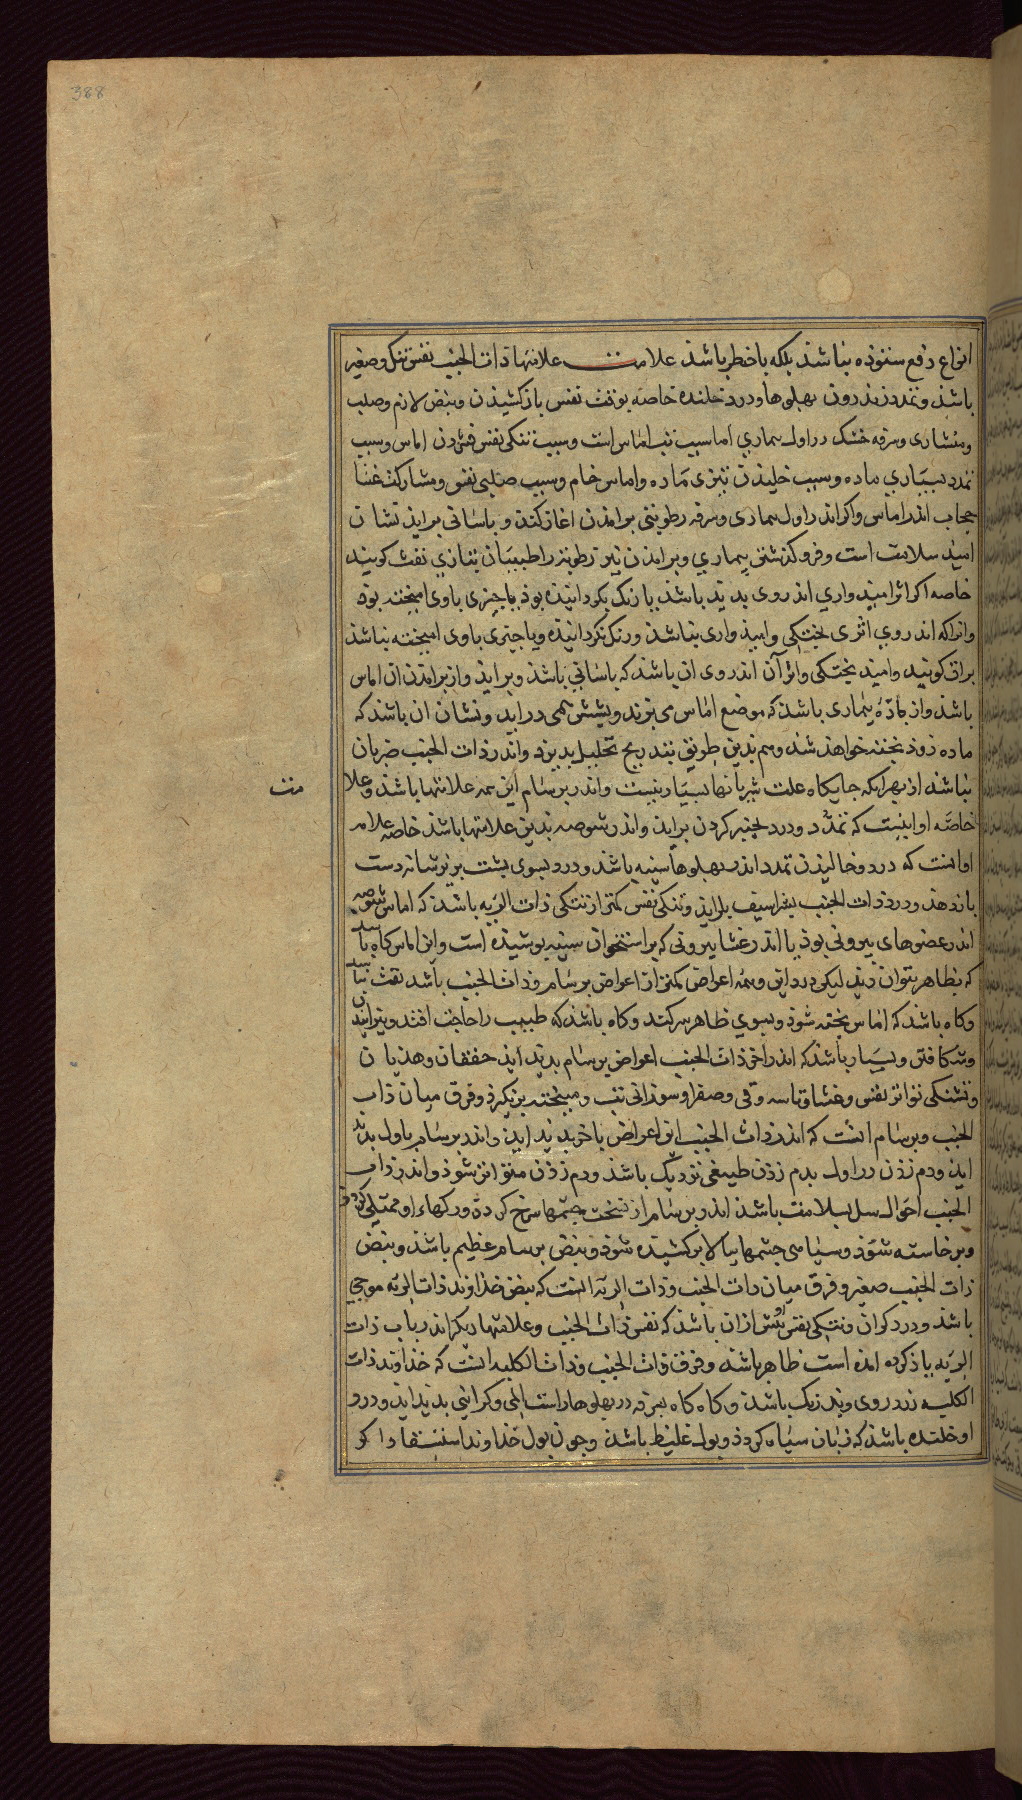 388
انواع دفع ستوده نباشد بلکه باخطر باشد علامت علامتهاء ذات الجنب نفس تنک و صغیر
باشد و تمدد اندرون پهلوها و درد خلنده خاصه بوقت نفس بازکشیدن و نبض لازم و صلب
و منشاری و سرفه خشک در اول بیماری اما سبب تب اماس است و سبب تنکی نفس فشردن اماس و سبب
تمدد بسیاری ماده و سبب خلیدن تیزی ماده و اماس خام و سبب صلبی نفس و مشارکت غشا
حجاب اندر اماس و اکر اندر اول بیماری و سرفه رطوبتی برامدن اغاز کند و باسانی براید نشان
امید سلامت است و فروکذشتن بیماری و برامدن این رطوبت را طبیبان بتازی نفث کویند
خاصه اکر اثر امیدواری اندر وی بدید باشد یا رنک بکردانیده بوذ یا چیزی باوی امیخته بوذ
وانرا که اندر وی اثری پختکی و امیذواری نباشذ و رنک نکردانیده و یا چیزی باوی امیخته نباشذ
بزاق کویند و امید پختکی و اثر آن اندر وی ان باشد که باسانی باشذ و براید و از برامدن ان اماس
باشد و از ماده بیماری باشد که موضع اماس می پزند و بشش همی دراید و نشان ان باشد که
ماده زوذ پخته خواهذ شد و هم بدین طریق بتدریج تحلیل بدیزد و اندر ذات الجنب ضربان
نباشد از بهر انکه جایکاه علت شریانها بسیار نیست و اندر برسام این همه علامتها باشذ و علا
مت
خاصه او اینست که تمدد و درد بجنبر کردن براید و اندر شوصه بدین علامتها باشذ خاصه علامه
او انست که درد و خالیدن تمدد اندر پهلوها سینه باشذ و درد بسوی پشت بربر شانه دست
بازدهد و درد ذات الجنب بشراسیف براید و تنکی نفس کمتر از تنکی ذات الریه باشد که اماس شوصه
اندر عضوهای بیرونی بوذ یا اندر غشا بیرونی که بر استخوان سینه پوشیده است و این اماس کاه باشد
که بظاهر بتوان دید لیکن درد این و همه اعراض کمتر از اعراض برسام و ذات الجنب باشد نفث نباشد
و کاه باشد که اماس پخته شوذ و بسوی ظاهر سر کند و کاه باشد که طبیب را حاجت افتد و بترانیدن
و شکافتن و بسیار باشد که اندر اخر ذات الجنب اعراض برسام بدید اید خفقان و هذیان
و تشنکی تواتر نفس و غشا و تاسه و قی و صفرا و سوزانی تب و میبخته برنکیرد و فرق میان ذات
الجنب و برسام انست که اندر ذات الجنب این اعراض باخر بدید اید و اندر برسام باول بدید
اید و دم زذن در اول بدم زذن طبیعی نزدیک باشد و دم زذن متواتر شوذ و اندر ذات
الجنب احوال سل بسلامت باشد اندر برسام از نخست چشمها سرخ کردد و رکهاء او ممتلی کردد
و برخاسته شوذ و سیاهی چشمها ببالا برکشیده شوذ و نبض برسام عظیم باشذ و نبض
ذات الجنب صغیر و فرق میان ذات الجنب و ذات الریه انست که نبض خذاوند ذات الریه موجی
باشد و درد کران و تنکی نفس او بیش ازان باشد که نفس ذات الجنب و علامتهاء دیکر اندر باب ذات
الریه یاذ کرده امده است ظاهر باشد و فرق ذات الجنب و ذات الکلیه انست که خذاوند ذات
الکلیه زرد روی و بدرنک باشد و کاه کاه بسرفه در پهلوها راست المی و کرانی بدید اید و درد
او خلنده باشد که زبان سیاه کردد و بول غلیظ باشد و چون بول خذاوند استسقا و اکر